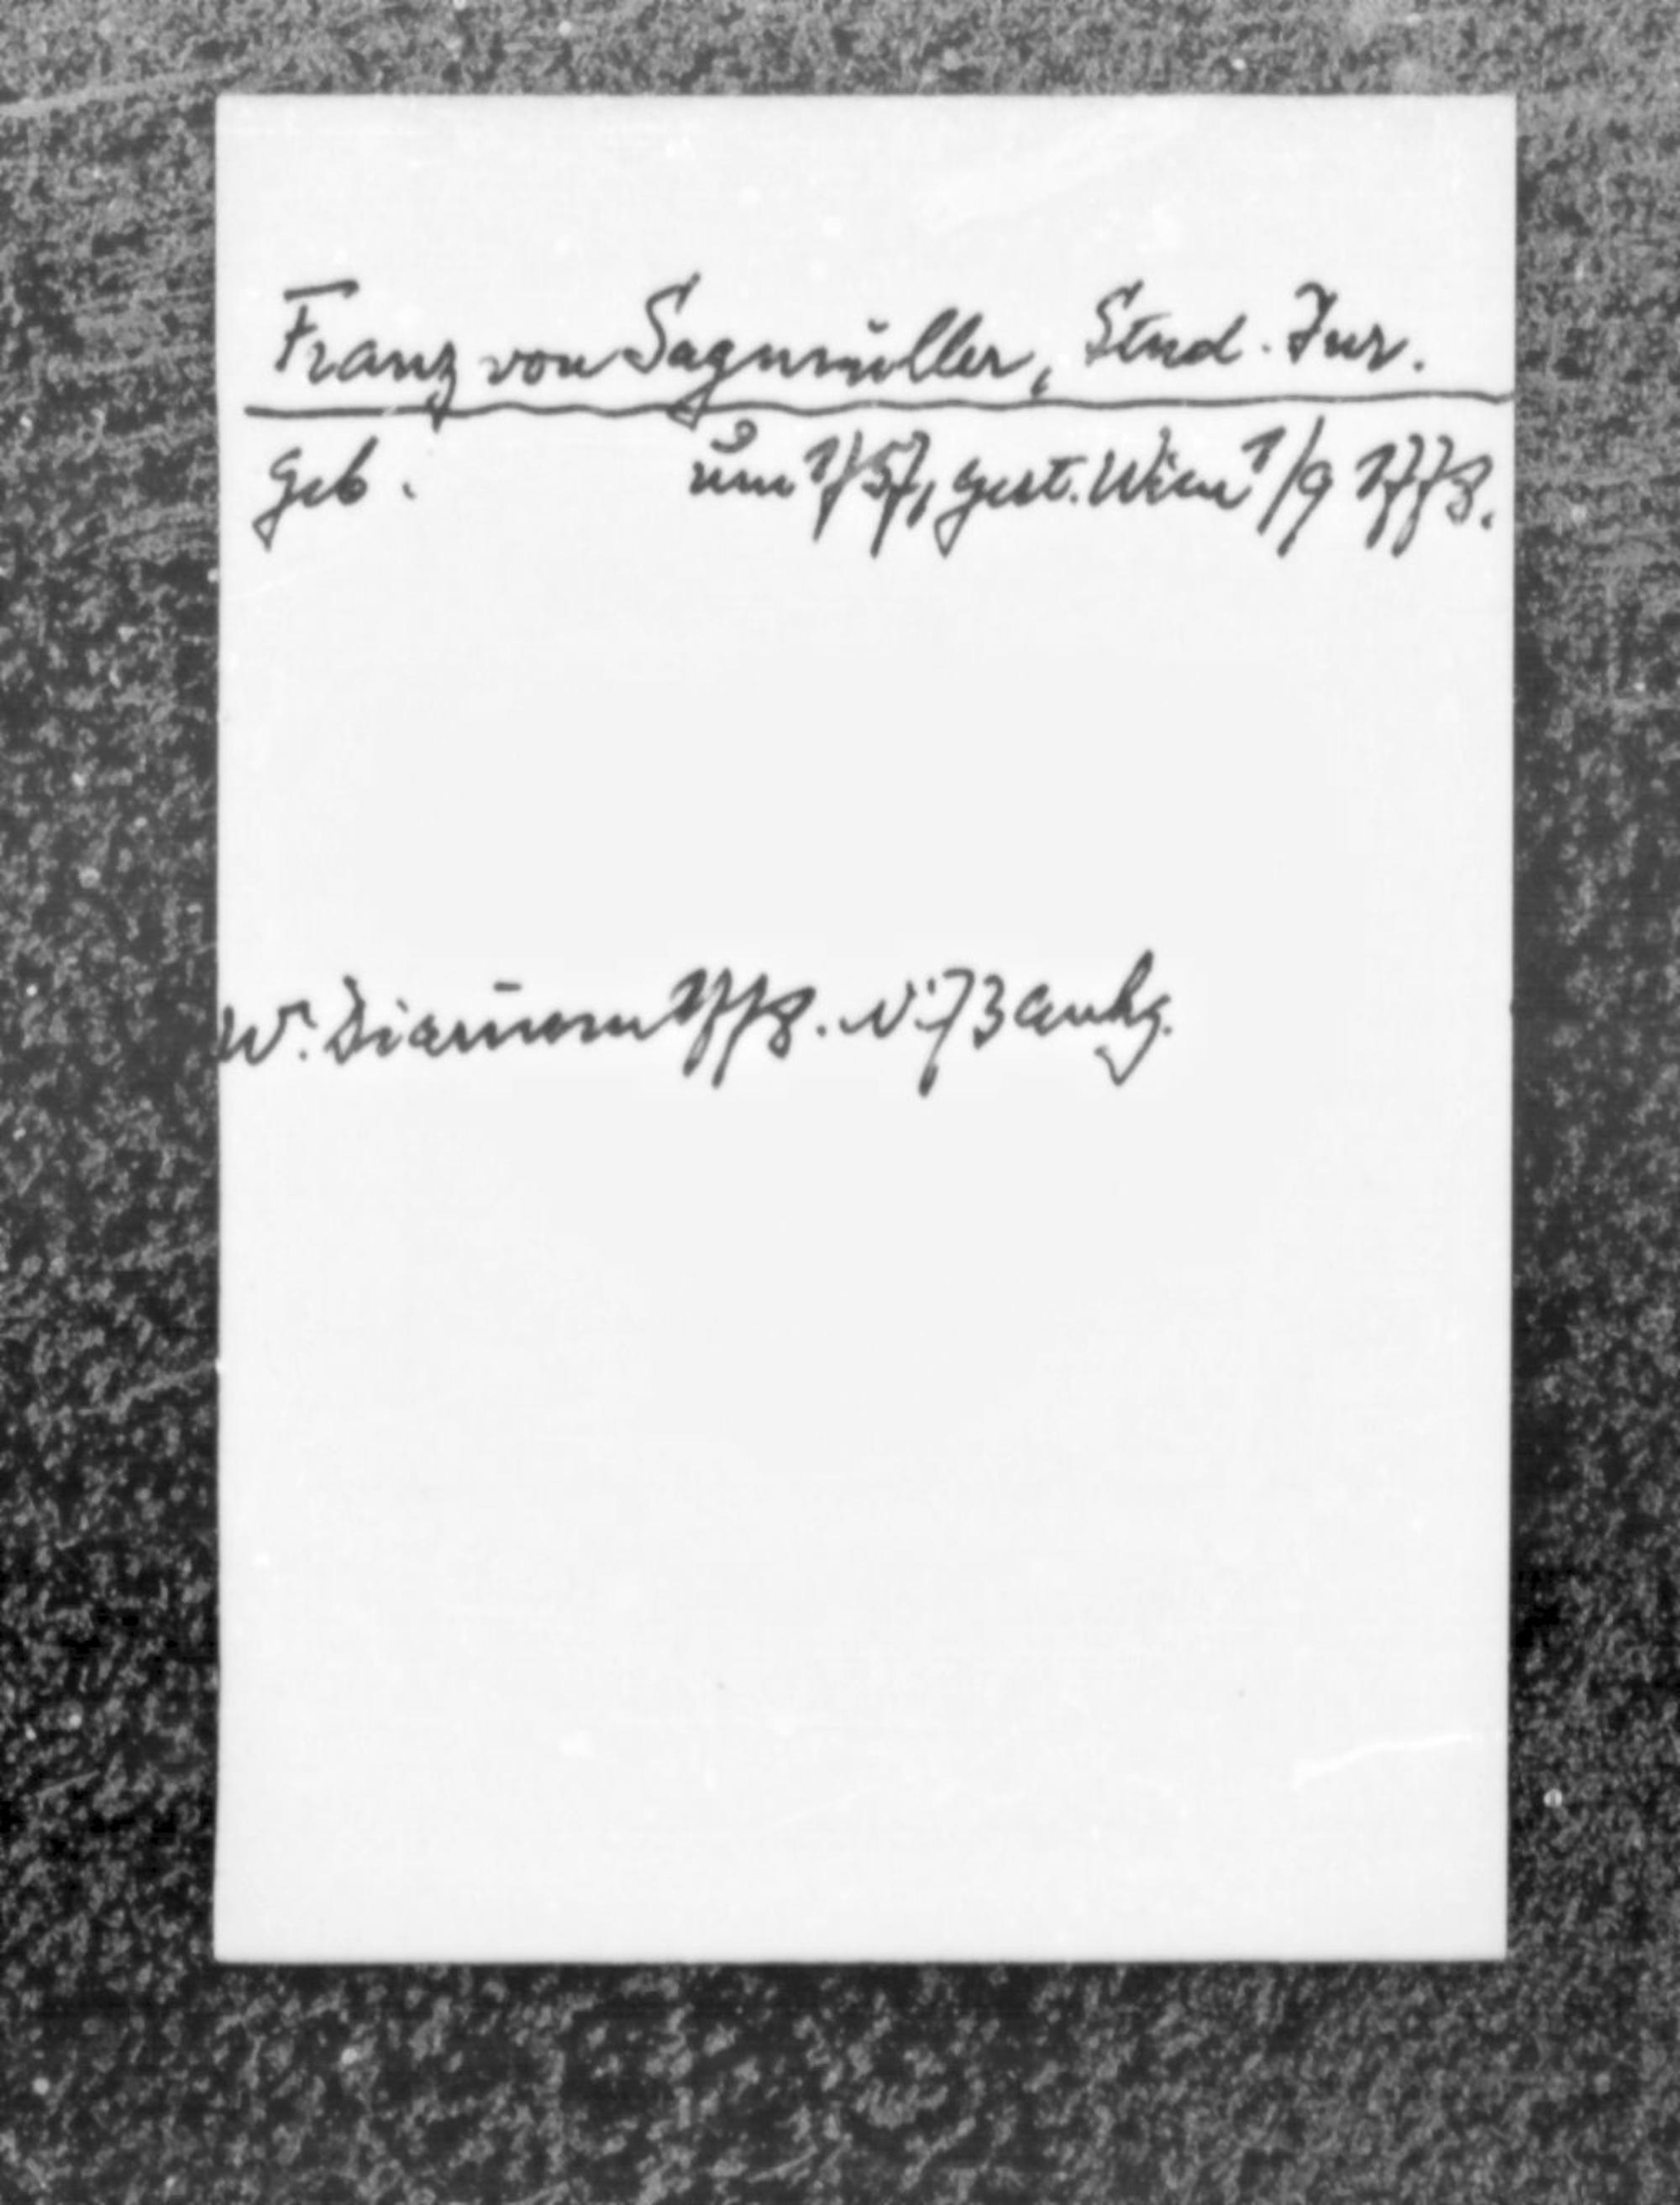 Franz von Sagmüller, Stud. Jur.
geb. um 1757, gest. Wien 1/9 1778.
Wr. Diarium 1778. Nr: 73 Anhg.